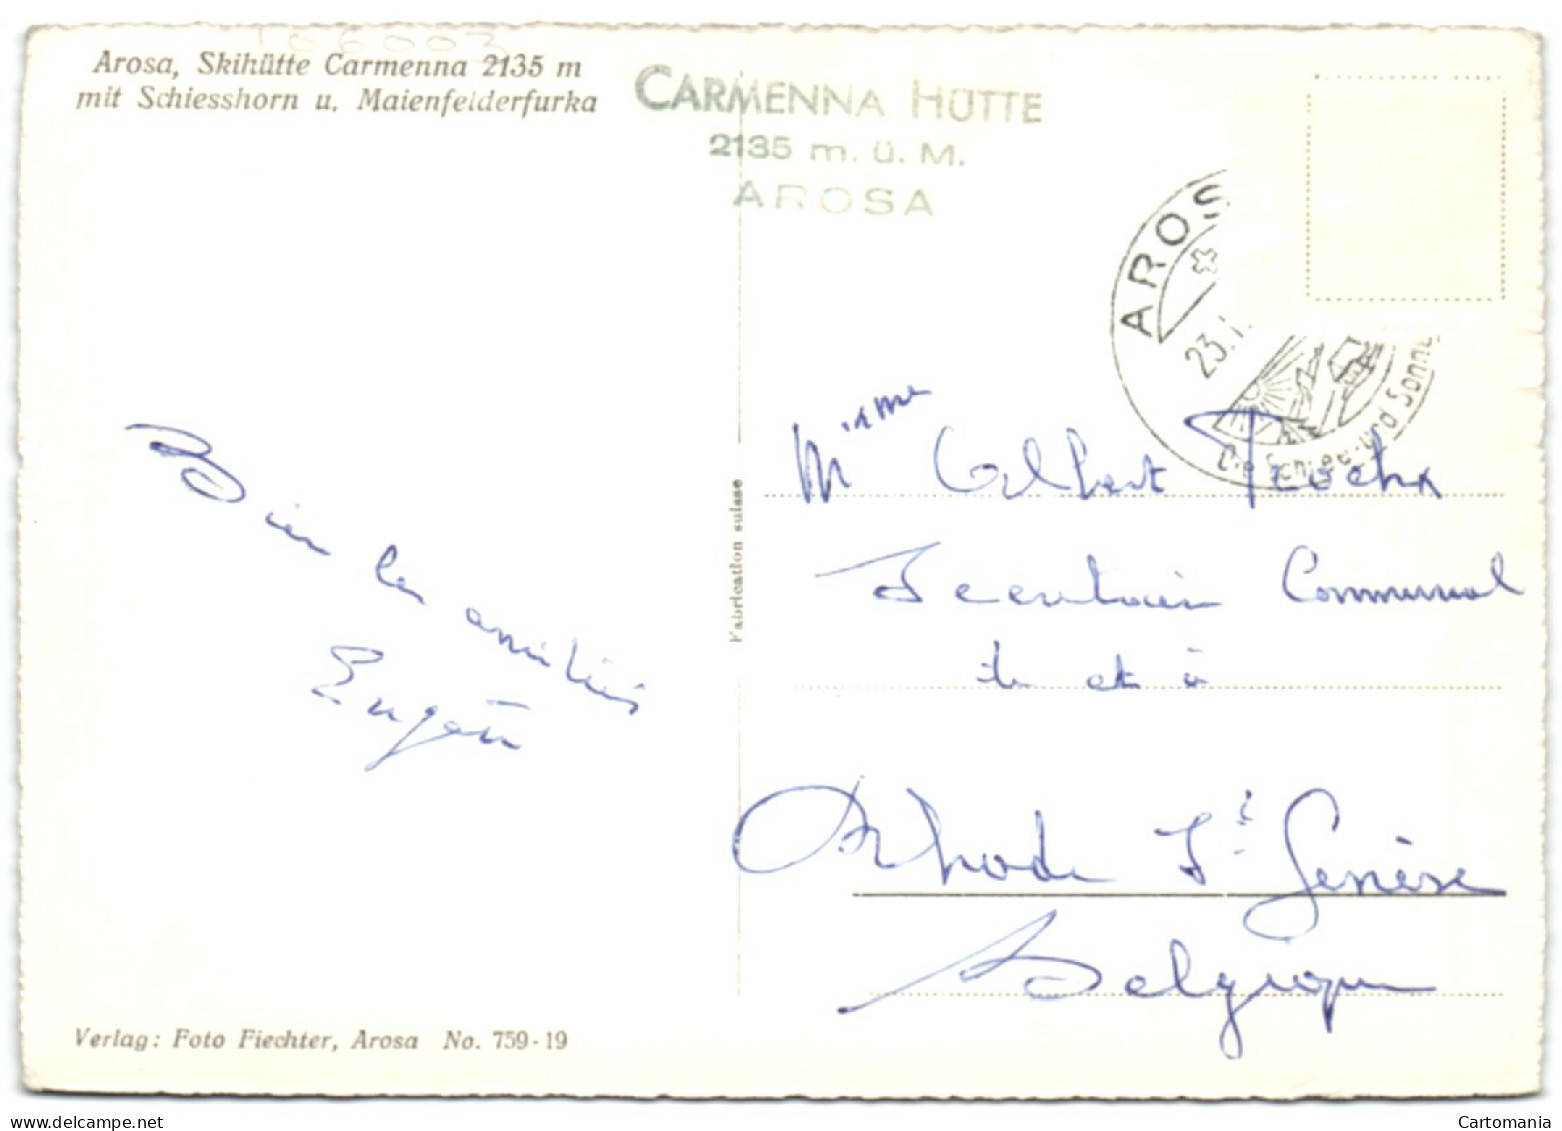 106003
Arosa, Skihütte Carmenna 2135 m
mit Schiesshorn u. Maienfelderfurka
CARMENNA HÜTTE
2135 m. ü. M.
AROSA
AROS
23.I.
Die Schnee- und Sonn
Fabrication suisse
Bien les amitiés
Mr et Mme Albert
Secrétaire Communal
de et à
Rhode St Genèse
Belgique
Verlag: Foto Fiechter, Arosa No. 759-19
Cartomania